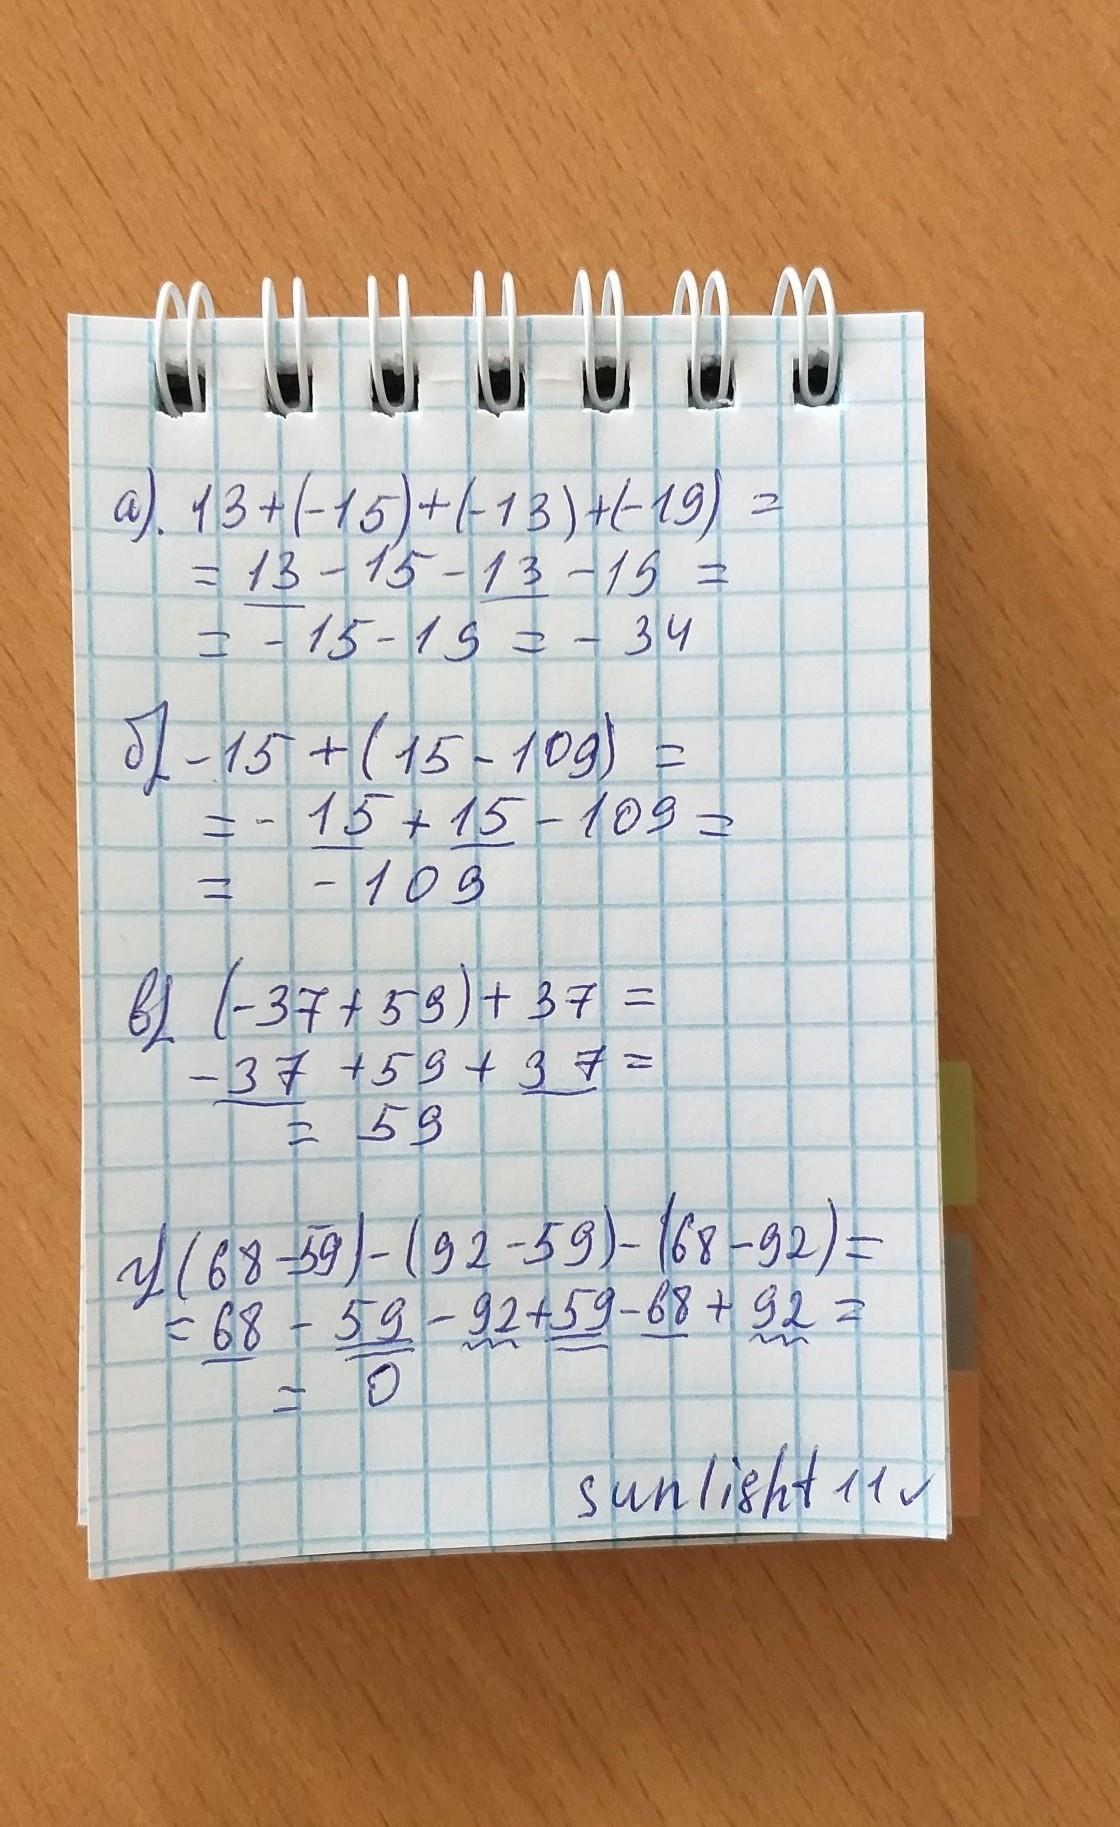 а). 13+(-15)+(-13)+(-19) =
= 13 - 15 - 13 - 19 =
= - 15 - 19 = - 34
б) - 15 + (15 - 109) =
= - 15 + 15 - 109 =
= - 109
в) (-37 + 59) + 37 =
- 37 + 59 + 37 =
= 59
г) (68 - 59) - (92 - 59) - (68 - 92) =
= 68 - 59 - 92 + 59 - 68 + 92 =
= 0
sunlight 11 ✓